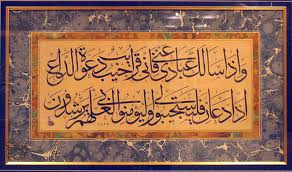 وَإِذَا سَأَلَكَ عِبَادِي عَنِّي فَإِنِّي قَرِيبٌ أُجِيبُ دَعْوَةَ الدَّاعِ
إِذَا دَعَانِ فَلْيَسْتَجِيبُوا لِي وَلْيُؤْمِنُوا بِي لَعَلَّهُمْ يَرْشُدُونَ